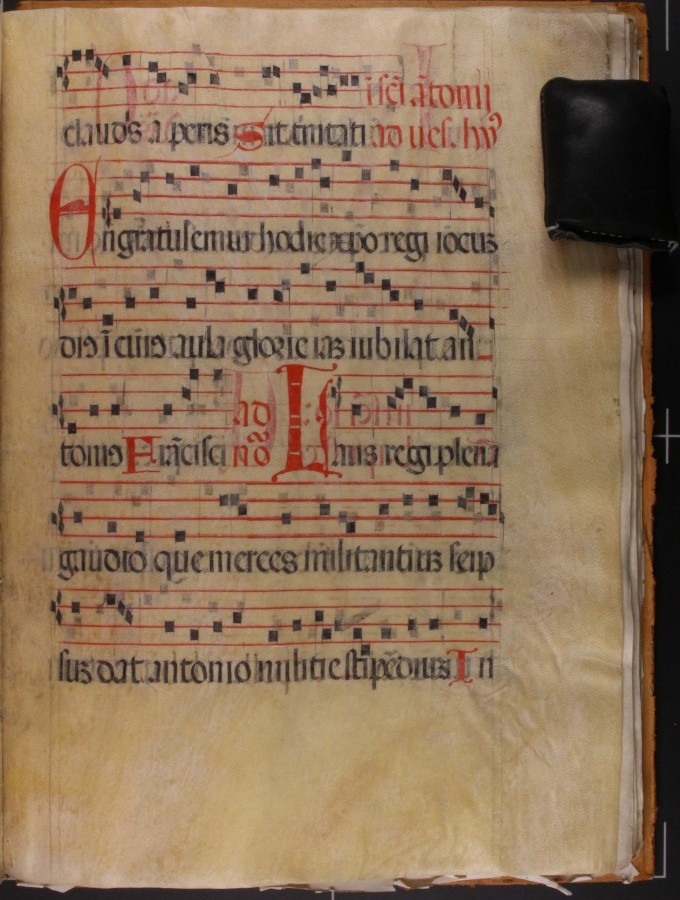 i sc̄i ātonij
claud's a penis Sit t̄nitati ad ues. hȳ
Congratulemur hodie xp̄o regi iocun
dis ī cui9 aula glorie ias iubilat an
tonis Frācisci ad no
Laus regi plena
gaudio que merces militantius seip
sus dat antonio militi e stipēdius In